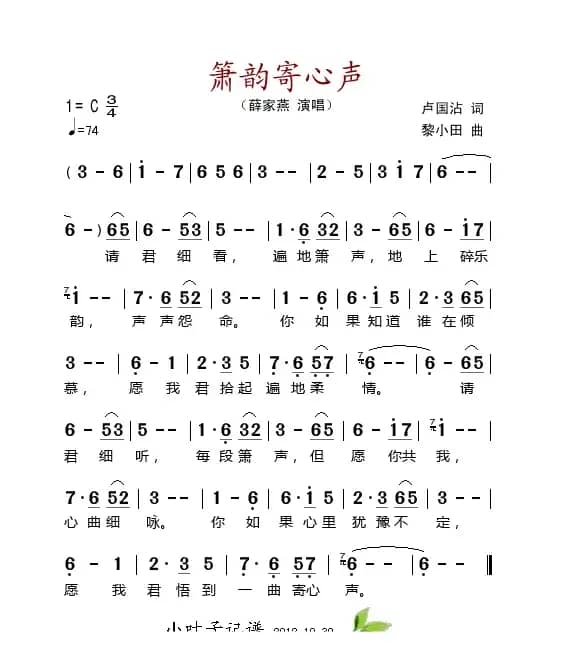 箫韵寄心声
1= C 3/4
（薛家燕 演唱）
卢国沾 词
♩=74
黎小田 曲
( 3 - 6 | i - 7 | 6 5 6 | 3 - - | 2 - 5 | 3 i 7 | 6 - - |
6 - ) 65 | 6 - 53 | 5 - - | 1 · 6 32 | 3 - 65 | 6 - i7 |
请 君 细 看， 遍 地箫 声，地 上 碎乐
7 i - - | 7 · 6 52 | 3 - - | 1 - 6 | 6 · i 5 | 2 · 3 65 |
韵， 声 声怨 命。 你 如 果知道 谁 在倾
3 - - | 6 - 1 | 2 · 3 5 | 7 · 6 57 | 7 6 - - | 6 - 65 |
慕， 愿 我 君 拾起 遍 地柔 情。 请
6 - 53 | 5 - - | 1 · 6 32 | 3 - 65 | 6 - i7 | 7 i - - |
君 细 听， 每 段箫 声，但 愿 你共 我，
7 · 6 52 | 3 - - | 1 - 6 | 6 · i 5 | 2 · 3 65 | 3 - - |
心 曲细 咏。 你 如 果 心里 犹 豫不 定，
6 - 1 | 2 · 3 5 | 7 · 6 57 | 7 6 - - | 6 - - ‖
愿 我 君 悟 到 一 曲 寄心 声。
小叶子记谱